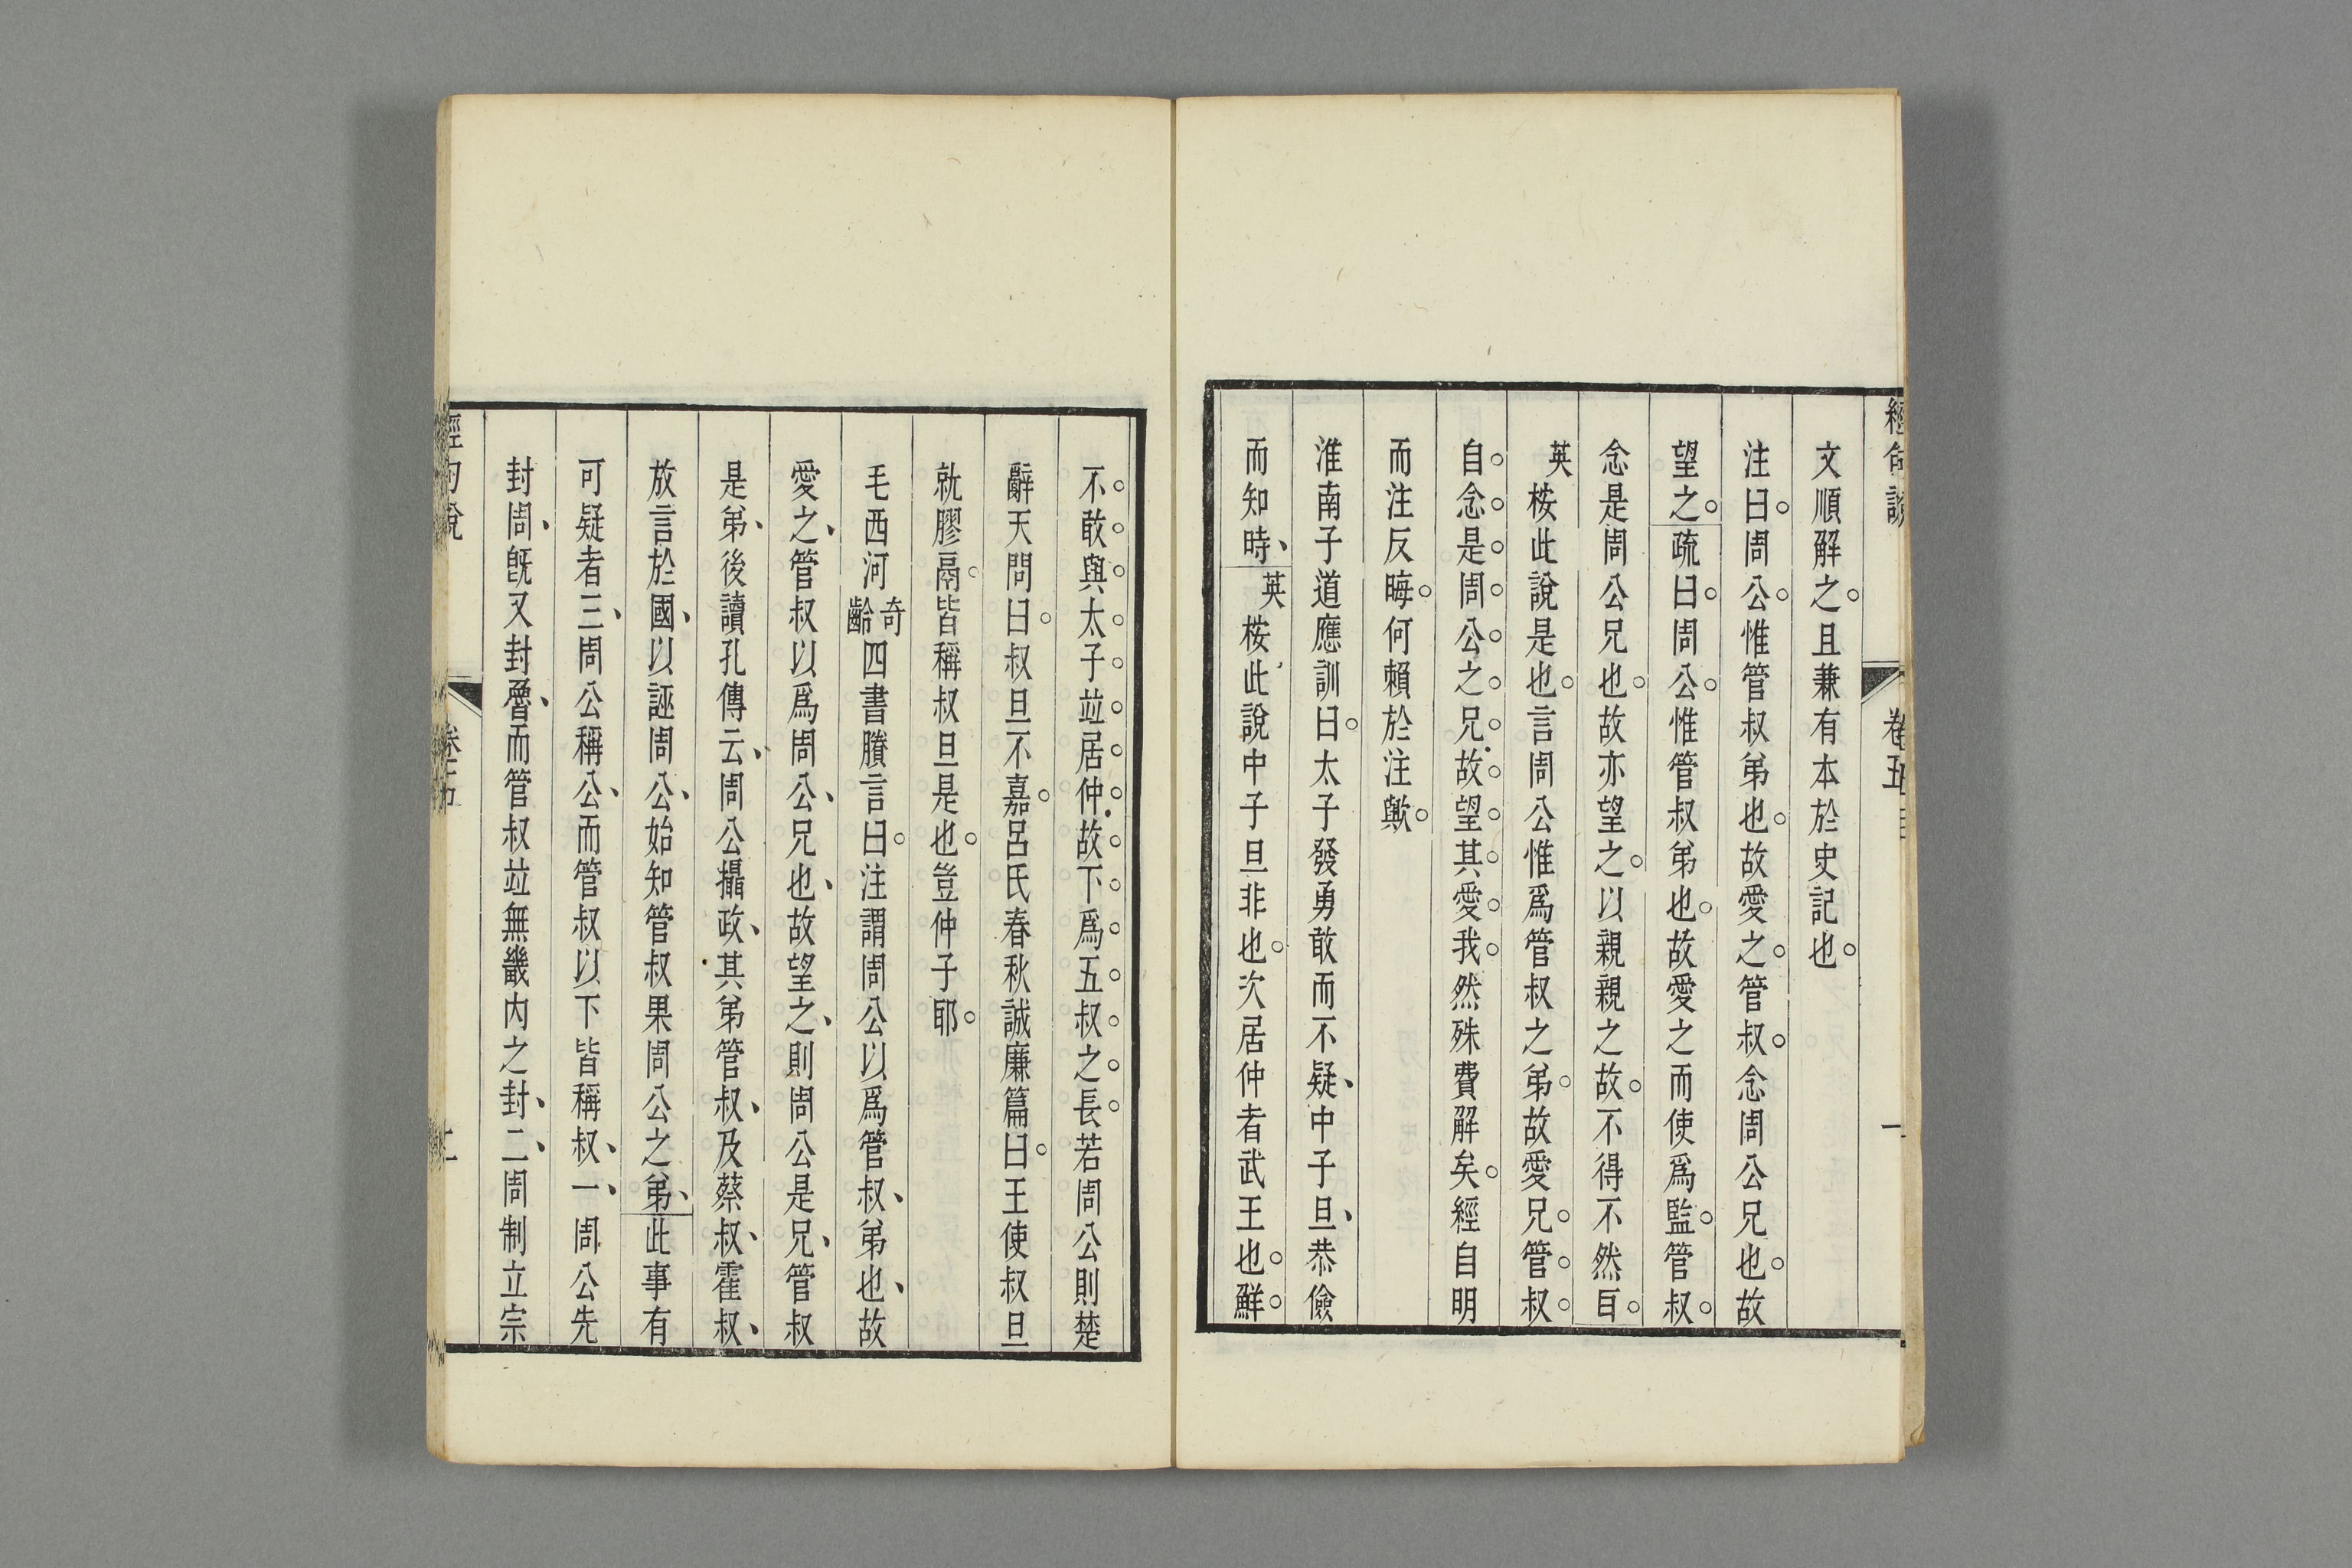 經句說 卷五 一
文順解之。且兼有本於史記也。
注曰。周公。惟管叔弟也。故愛之。管叔。念周公兄也。故
望之。疏曰。周公。惟管叔弟也。故愛之而使爲監。管叔。
念是周公兄也。故亦望之。以親親之故。不得不然耳。
英桉此說是也。言周公惟爲管叔之弟。故愛兄。管。叔。
自。念。是。周。公。之。兄。故。望。其。愛。我。然殊費解矣。經自明
而注反晦。何賴於注歟。
淮南子道應訓曰。太子發勇敢而不疑、中子旦、恭儉
而知時、英桉此說中子旦非也。次居仲者武王也。鮮。
不。敢。與。太。子。竝。居。仲。故。下。爲。五。叔。之。長。若周公則楚
辭天問曰。叔旦不嘉。呂氏春秋誠廉篇曰。王使叔旦
就膠鬲。皆稱叔旦是也。豈仲子耶。
毛西河奇齡四書賸言曰。注謂周公以爲管叔、弟也、故
愛之、管叔以爲周公、兄也、故望之、則周公是兄、管叔
是弟、後讀孔傳云、周公攝政、其弟管叔、及蔡叔、霍叔、
放言於國、以誣周公、始知管叔果周公之弟、此事有
可疑者三、周公稱公、而管叔以下皆稱叔、一、周公先
封周、旣又封魯、而管叔竝無畿內之封、二、周制立宗
經句說 卷五 二